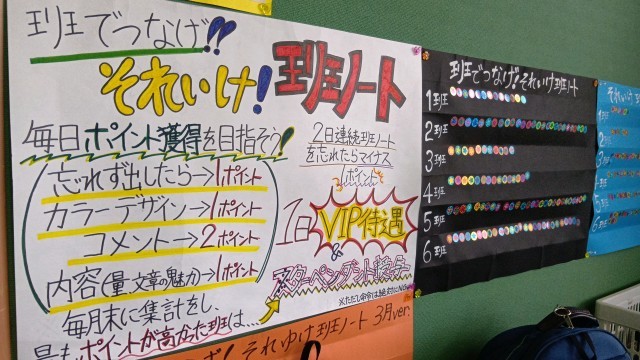 班でつなげ!!
それいけ!
班ノート
毎日ポイント獲得を目指そう!
忘れず出したら→1ポイント
カラーデザイン→1ポイント
コメント→2ポイント
内容(量、文章の魅力)→1ポイント
毎月末に集計をし、
最もポイントが高かった班は…
2日連続班ノート
を忘れたらマイナス
1ポイント
1日VIP待遇
&
それゆけ班ノート 3月ver.
班でつなげ!それいけ班ノート
1班
2班
3班
4班
5班
6班